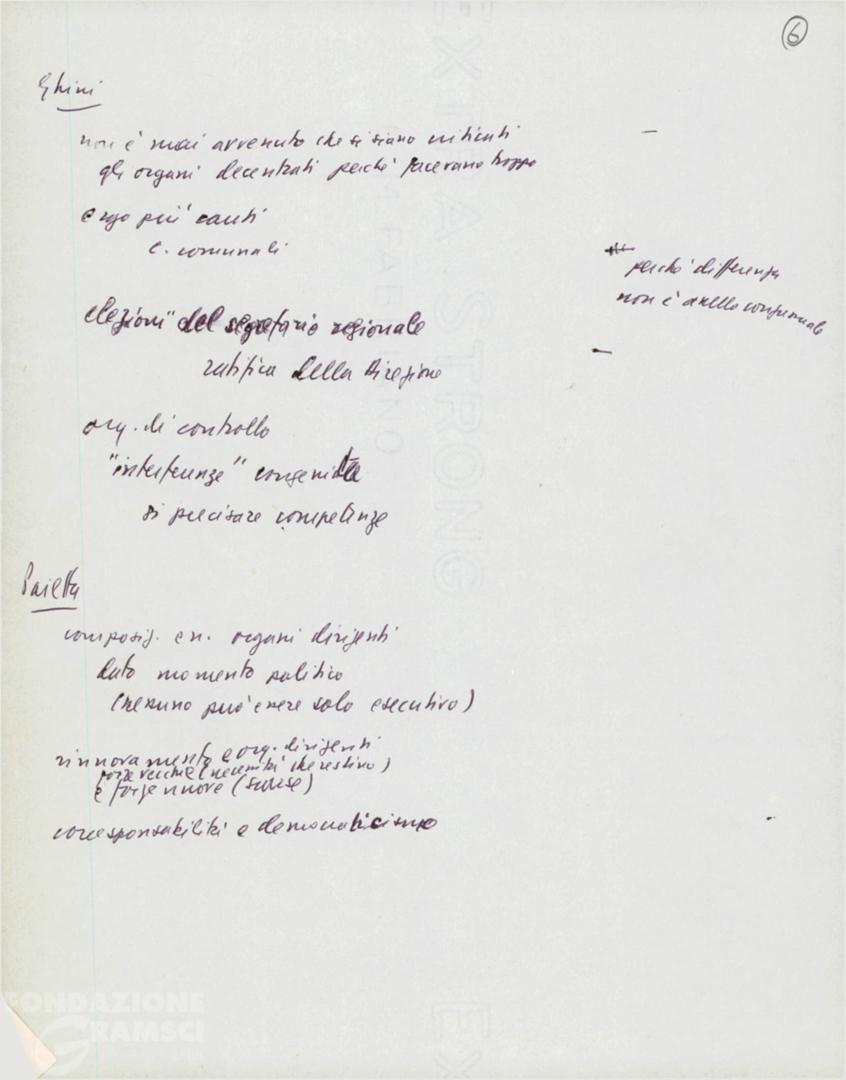 6
Ghini
non è mai avvenuto che si siano criticati
gli organi decentrati perché facevano troppo
ergo più cauti
c. comunali
perché differenza
non è anello
elezioni" del segretario regionale
ratifica della Direzione
org. di controllo
"interferenze" congenite
si precisare competenze
Pajetta
composiz. e n. organi dirigenti
dato momento politico
(nessuno può essere solo esecutivo)
rinnovamento e org. dirigenti
forze vecchie (necessità che restino)
e forze nuove (scarse)
corresponsabilità e democraticismo
FONDAZIONE
GRAMSCI
EXTRA STRONG
FABRIANO
EX